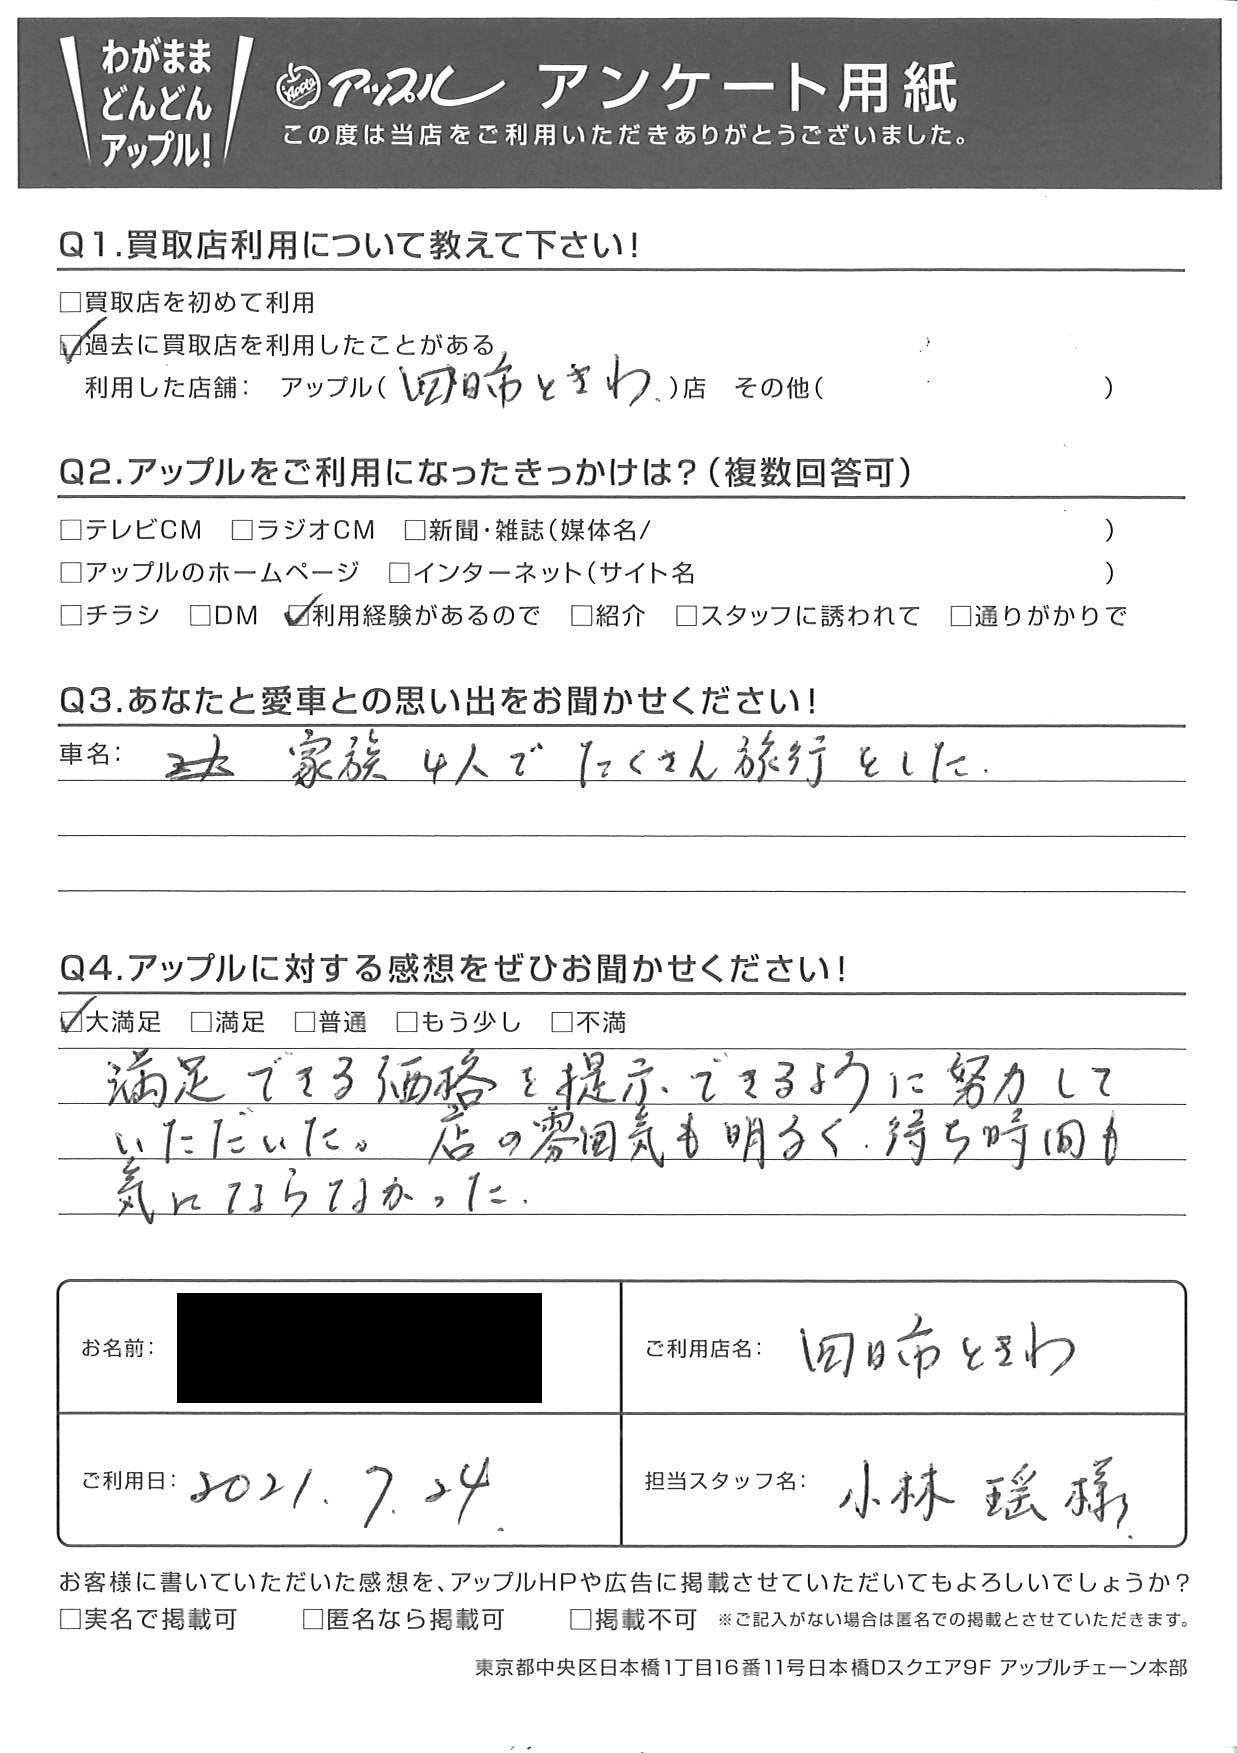 わがまま
どんどん
アップル!
Apple アップル アンケート用紙
この度は当店をご利用いただきありがとうございました。
Q1.買取店利用について教えて下さい!
□買取店を初めて利用
☑過去に買取店を利用したことがある
利用した店舗: アップル(四日市ときわ)店 その他( )
Q2.アップルをご利用になったきっかけは?(複数回答可)
□テレビCM □ラジオCM □新聞・雑誌(媒体名/ )
□アップルのホームページ □インターネット(サイト名 )
□チラシ □DM ☑利用経験があるので □紹介 □スタッフに誘われて □通りがかりで
Q3.あなたと愛車との思い出をお聞かせください!
車名: 家族4人でたくさん旅行をした.
Q4.アップルに対する感想をぜひお聞かせください!
☑大満足 □満足 □普通 □もう少し □不満
満足できる価格を提示できるように努力して
いただいた。店の雰囲気も明るく.待ち時間も
気にならなかった.
お名前:
ご利用店名: 四日市ときわ
ご利用日: 2021.7.24.
担当スタッフ名: 小林 瑶 様
お客様に書いていただいた感想を、アップルHPや広告に掲載させていただいてもよろしいでしょうか?
□実名で掲載可 □匿名なら掲載可 □掲載不可 ※ご記入がない場合は匿名での掲載とさせていただきます。
東京都中央区日本橋1丁目16番11号日本橋Dスクエア9F アップルチェーン本部